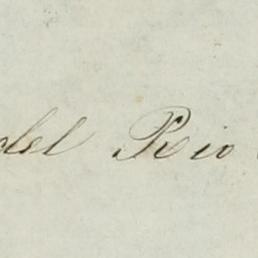 del Rio